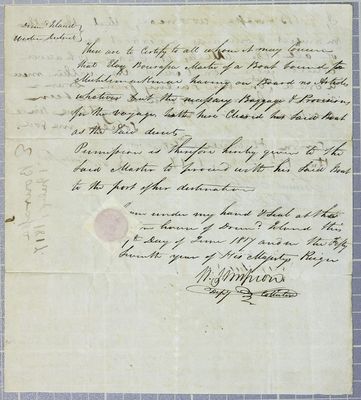 Drum.d Island
These are to Certify to all whom it may Concern
that Eloy Bourassa Master of a Boat bound to
Michilimackinac having on Board no Articles
whatever but the necessary Baggage & Provisions
for the voyage hath here Cleared his Said Boat
as the Law directs
Permission is therefore hereby given to the
Said Master to proceed with his Said Boat
to the port of her destination
Given under my hand & Seal at the
house of Drum.d Island this
Day of June 1817 and in the Fifty
Seventh year of His Majestys Reign
W. Simpson
Depy Collector